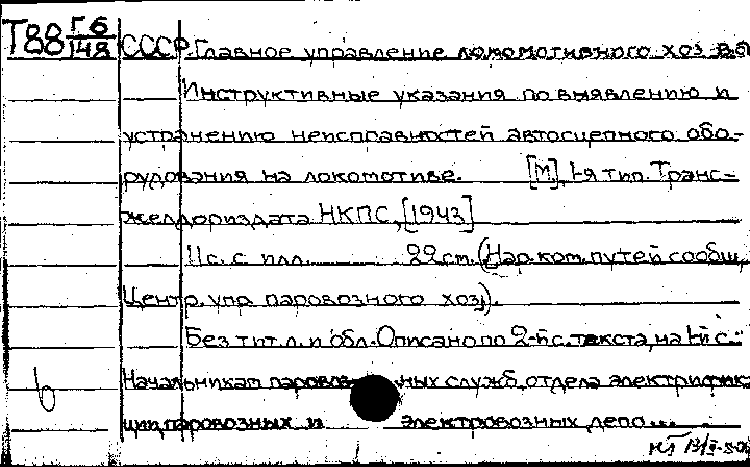 Т88 Г6/148 СССР. Главное управление локомотивного хоз-ва
Инструктивные указания по выявлению и
устранению неисправностей автосцепного обо-
рудования на локомотиве. [М.], 1-я тип. Транс-
желдориздата НКПС, [1943]
11 с. с илл. 22 см. (Нар. ком. путей сообщ.,
Центр. упр. паровозного хоз.).
Без тит. л. и обл. Описано по 2-й с. текста, на 1-й с.
Начальникам паровозных служб, отдела электрифика
ции, паровозных и электровозных депо...